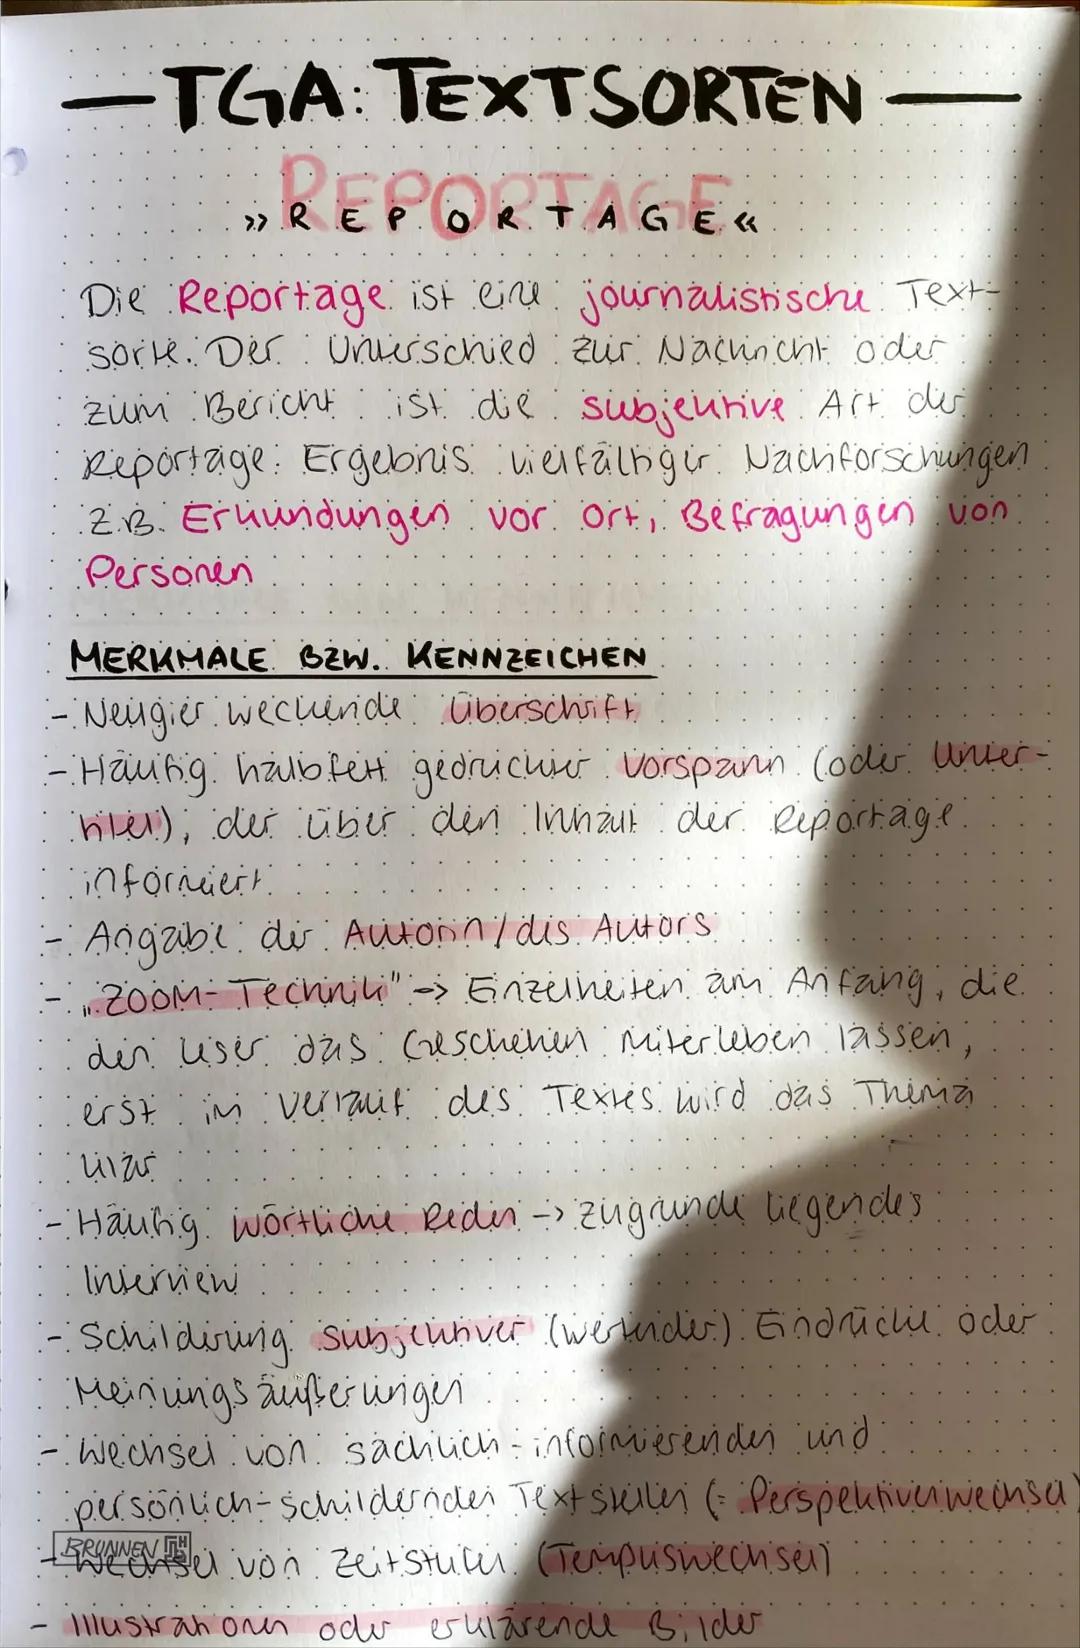 TGA: TEXTSORTEN
REPORTAGE
»REPORTAGE«
Die Reportage ist eine journalistische Text-
sorte. Der Unterschied zur Nachricht oder
zum Bericht ist die subjektive Art der
Reportage: Ergebnis vielfältiger Nachforschungen
z.B. Erkundungen vor Ort, Befragungen von
Personen
MERKMALE BZW. KENNZEICHEN
- Neugier weckende Überschrift
- Häufig halbfett gedruckter Vorspann (oder Unter-
titel), der über den Inhalt der Reportage
informiert
- Angabe der Autorin/des Autors
- „ZOOM-Technik" -> Einzelheiten am Anfang, die
den Leser das Geschehen miterleben lassen,
erst im Verlauf des Textes wird das Thema
klar
- Häufig wörtliche Reden -> zugrunde liegendes
Interview
- Schilderung subjektiver (wertender) Eindrücke oder
Meinungsäußerungen
- Wechsel von sachlich-informierenden und
persönlich-schildernden Textstellen (= Perspektivenwechsel)
BRUNNEN
- Wechsel von Zeitstufen (Tempuswechsel)
- Illustrationen oder erklärende Bilder